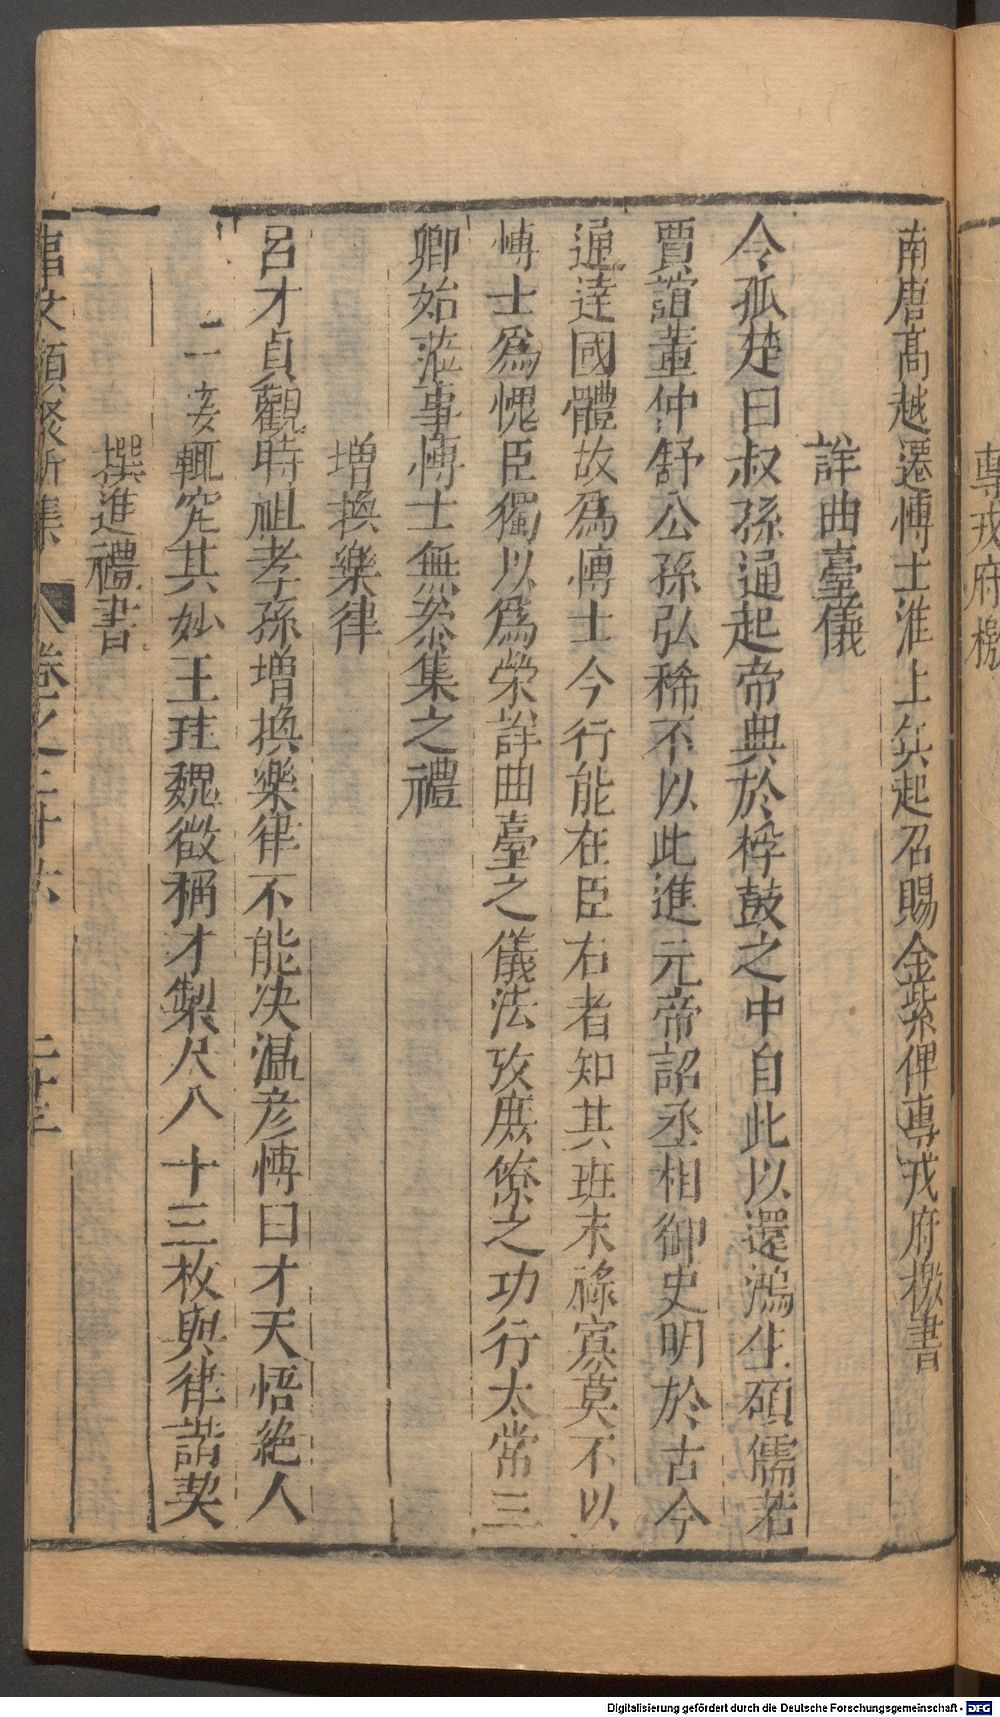 專戎府檄
南唐高越遷博士淮上兵起召賜金紫俾專戎府檄書
詳曲臺儀
令孤楚曰叔孫通起帝典於桴鼓之中自此以還鴻生碩儒若
賈誼董仲舒公孫弘稀不以此進元帝詔丞相御史明於古今
通達國體故爲博士今行能在臣右者知其班末祿寡莫不以
博士爲愧臣獨以爲榮詳曲臺之儀法攷庶僚之功行太常三
卿始蒞事博士無叅集之禮
增換樂律
呂才貞觀時祖孝孫增換樂律不能决溫彥博曰才天悟絶人
輒究其妙王珪魏徵稱才製尺八十三枚與律諧契
撰進禮書
事文類聚新集 卷之三十六 二十三
Digitalisierung gefördert durch die Deutsche Forschungsgemeinschaft - DFG